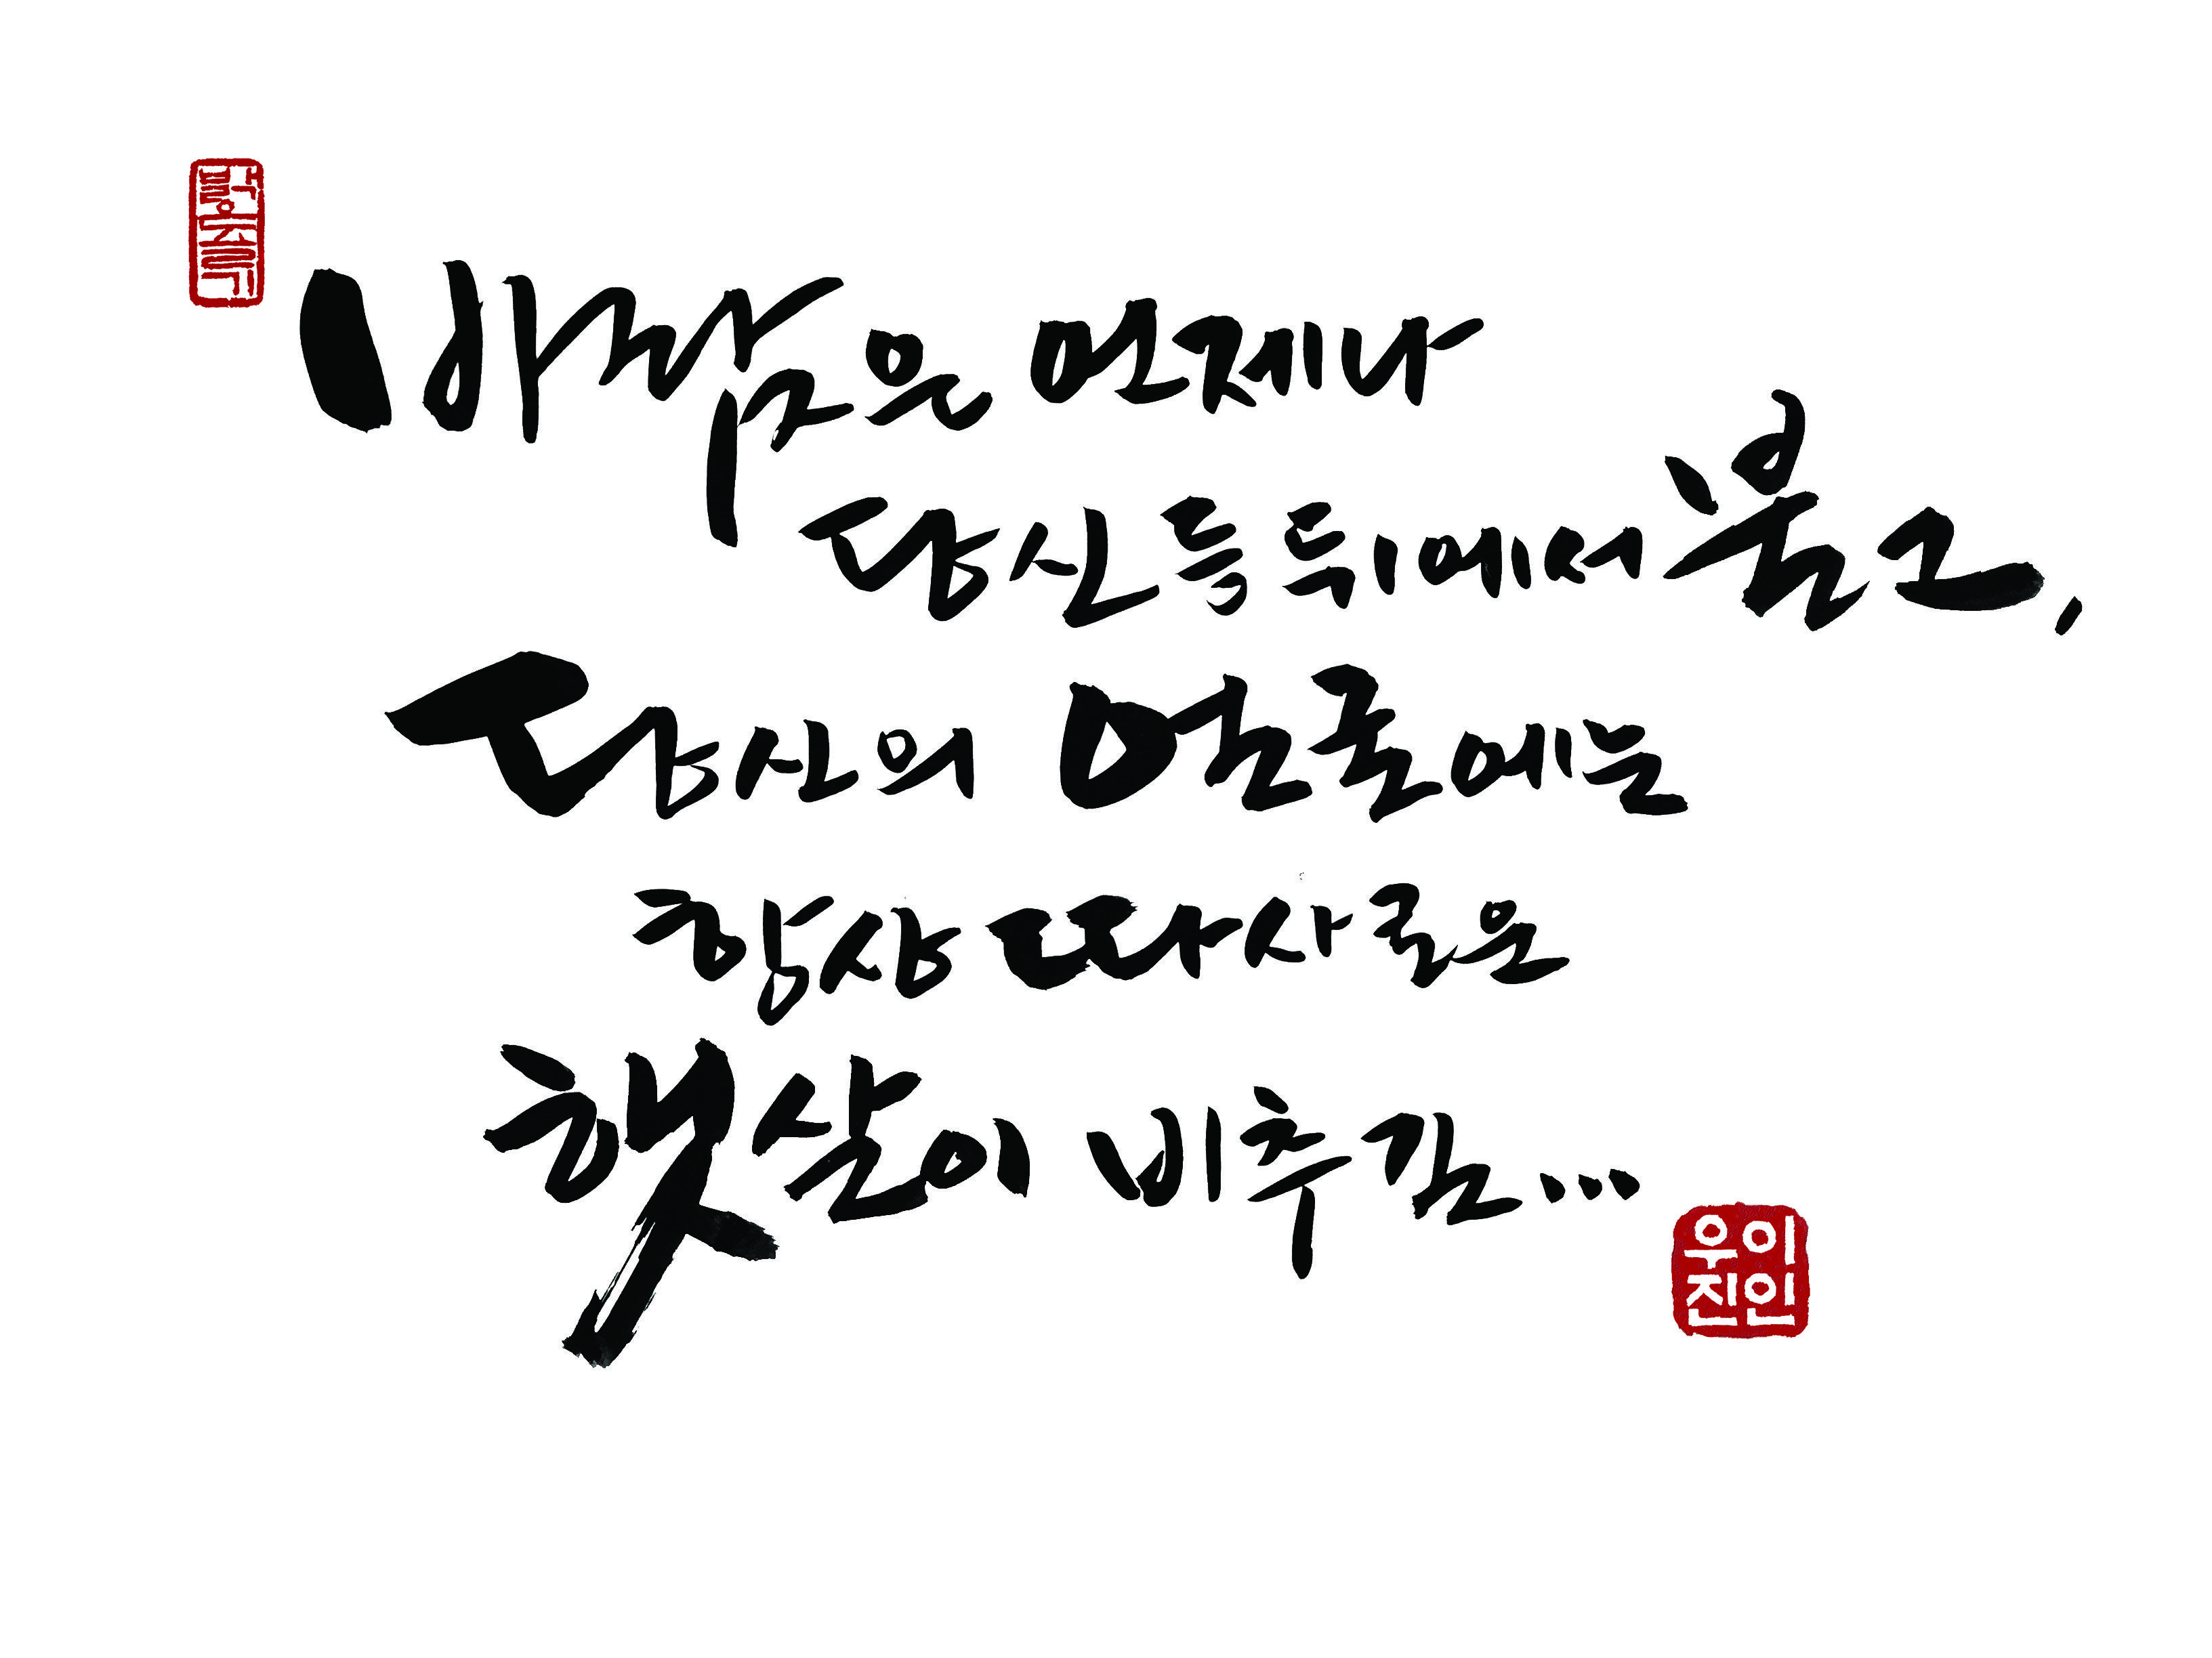 바람은 언제나
당신 등 뒤에서 불고,
당신의 얼굴에는
항상 따사로운
햇살이 비추길...
이인
우진